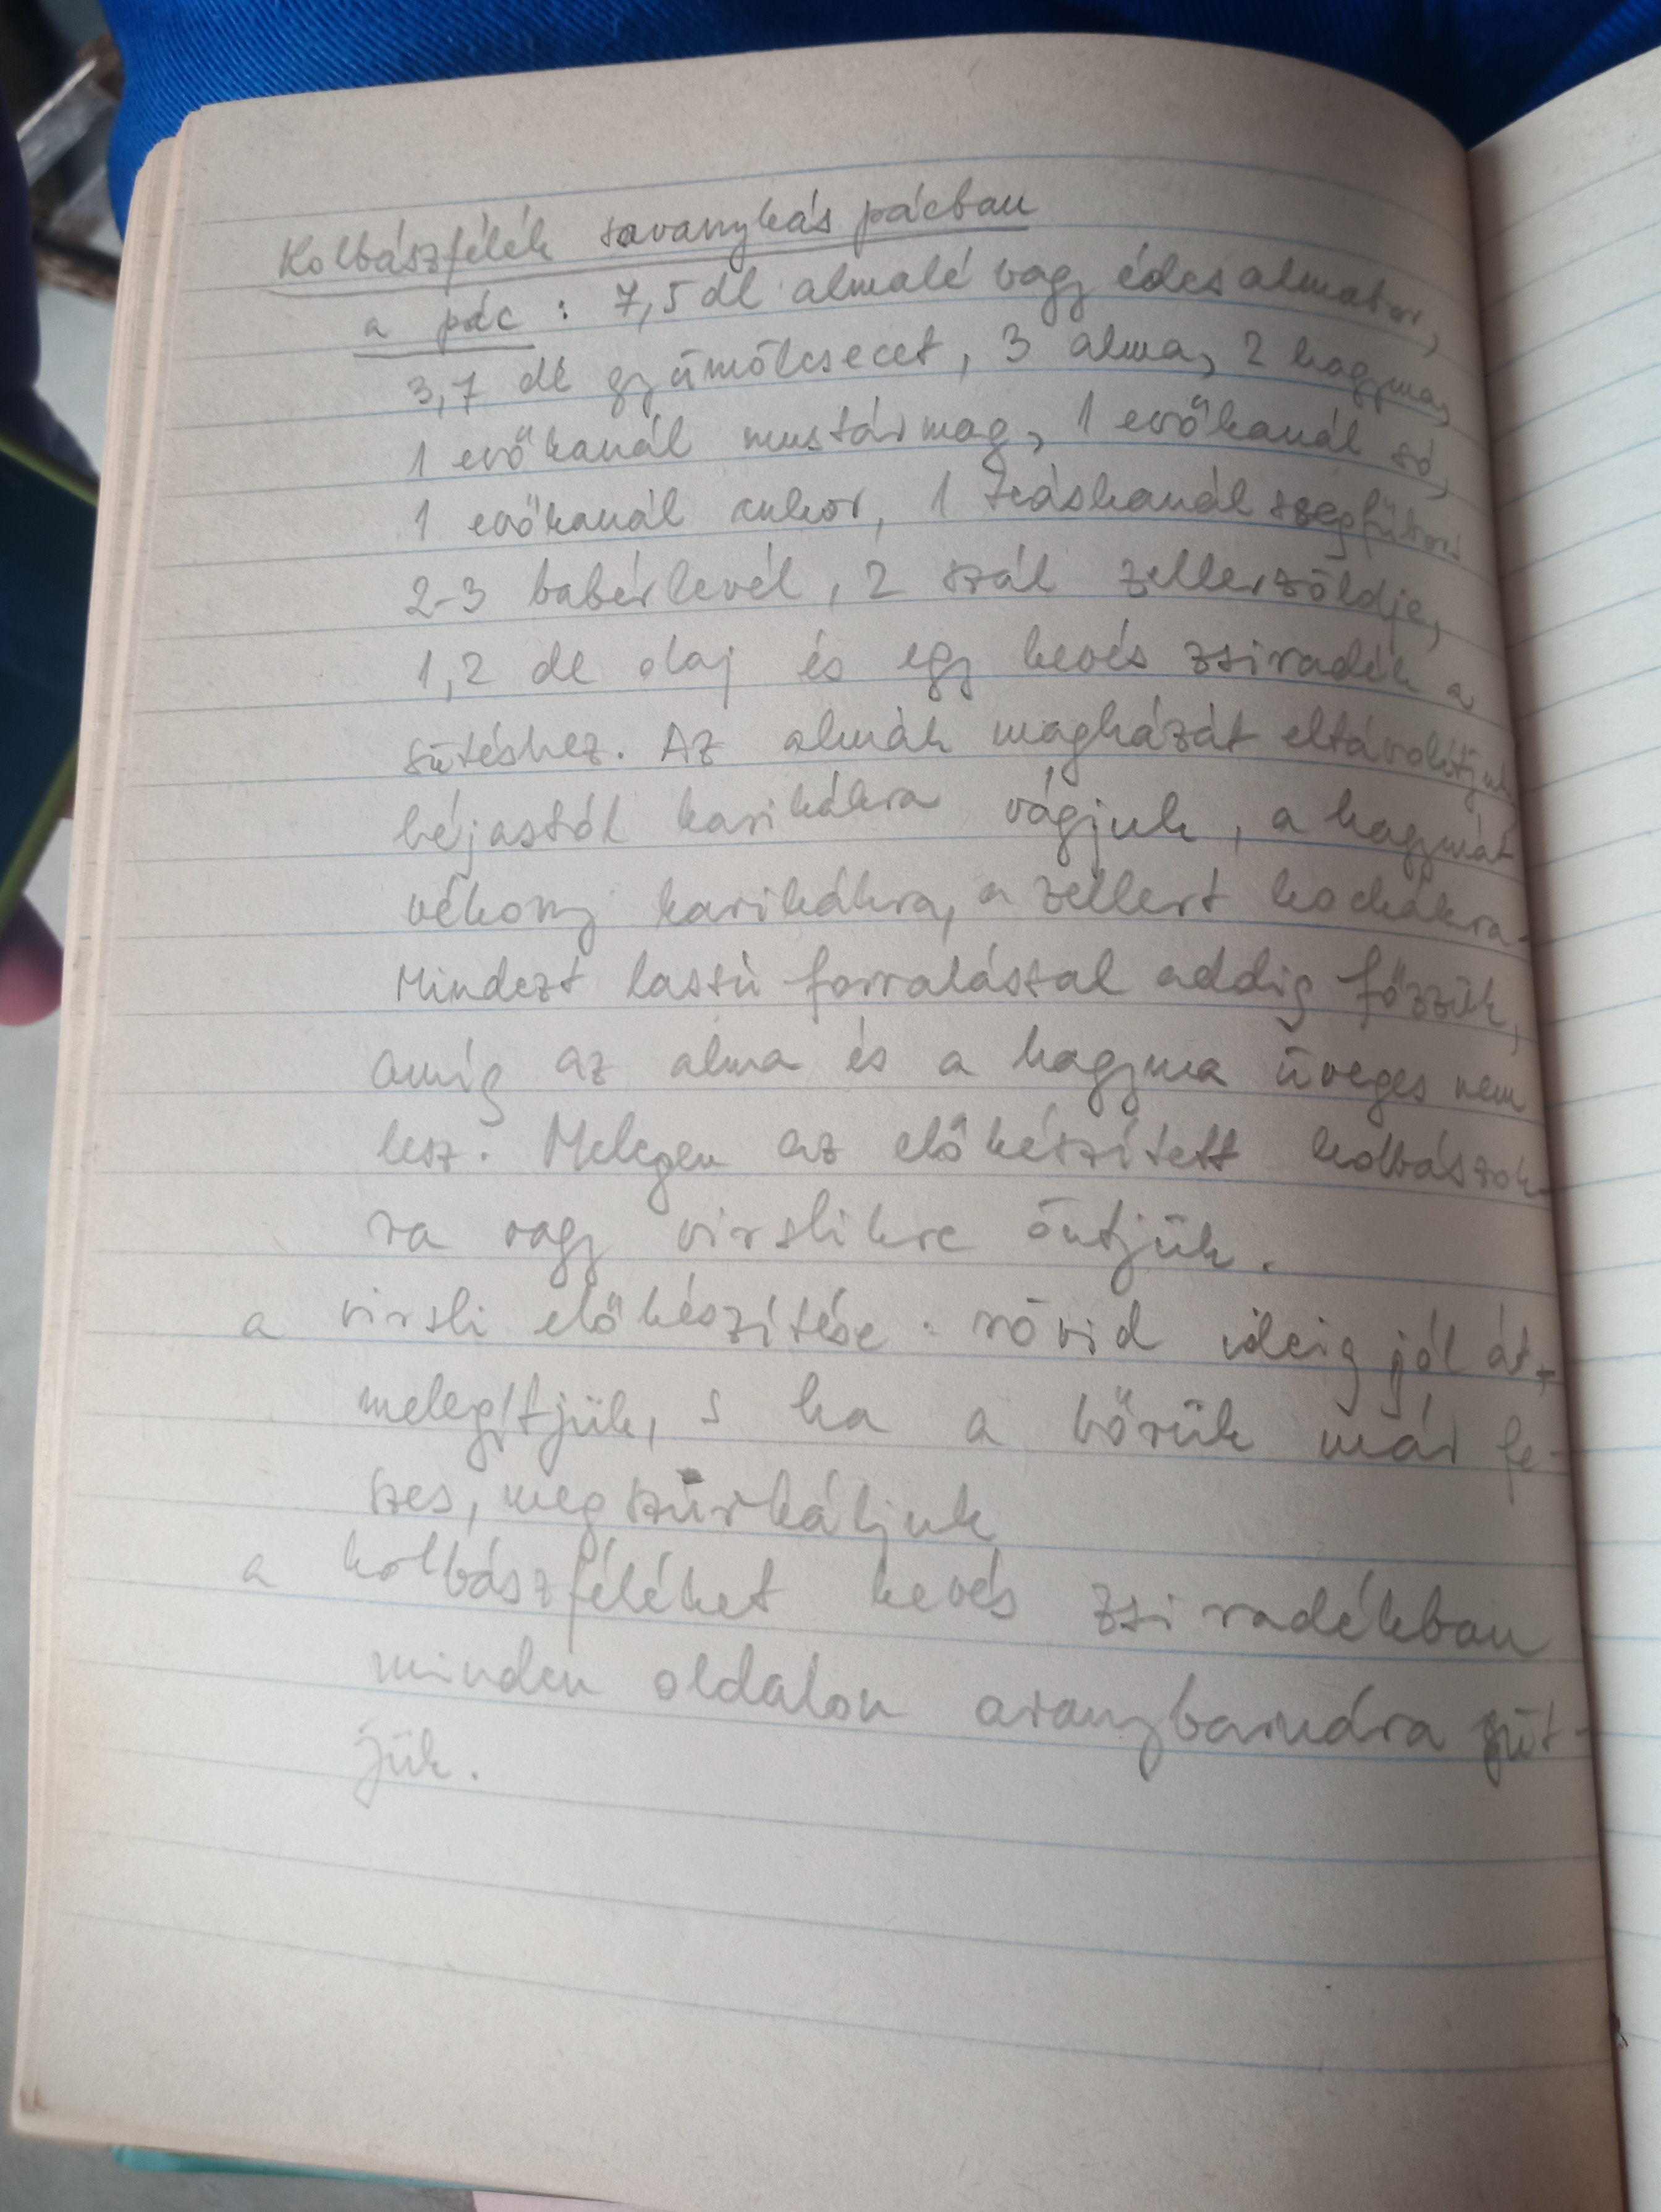 Kolbászfélék savanykás pácban
a pác : 7,5 dl almalé vagy édes almabor,
3,7 dl gyümölcsecet, 3 alma, 2 hagyma,
1 evőkanál mustármag, 1 evőkanál só,
1 evőkanál cukor, 1 teáskanál szegfűbors
2-3 babérlevél, 2 szál zellerzöldje,
1,2 dl olaj és egy kevés zsiradék a
sütéshez. Az almák magházát eltávolítjuk,
héjastól karikákra vágjuk, a hagymát
vékony karikákra, a zellert kockákra.
Mindezt lassú forralással addig főzzük,
amíg az alma és a hagyma üveges nem
lesz. Melegen az előkészített kolbászok-
ra vagy virslikre öntjük.
a virsli előkészítése: rövid ideig jól át-
melegítjük, s ha a bőrük már fe-
szes, megszurkáljuk
a kolbászféléket kevés zsiradékban
minden oldalon aranybarnára süt-
jük.